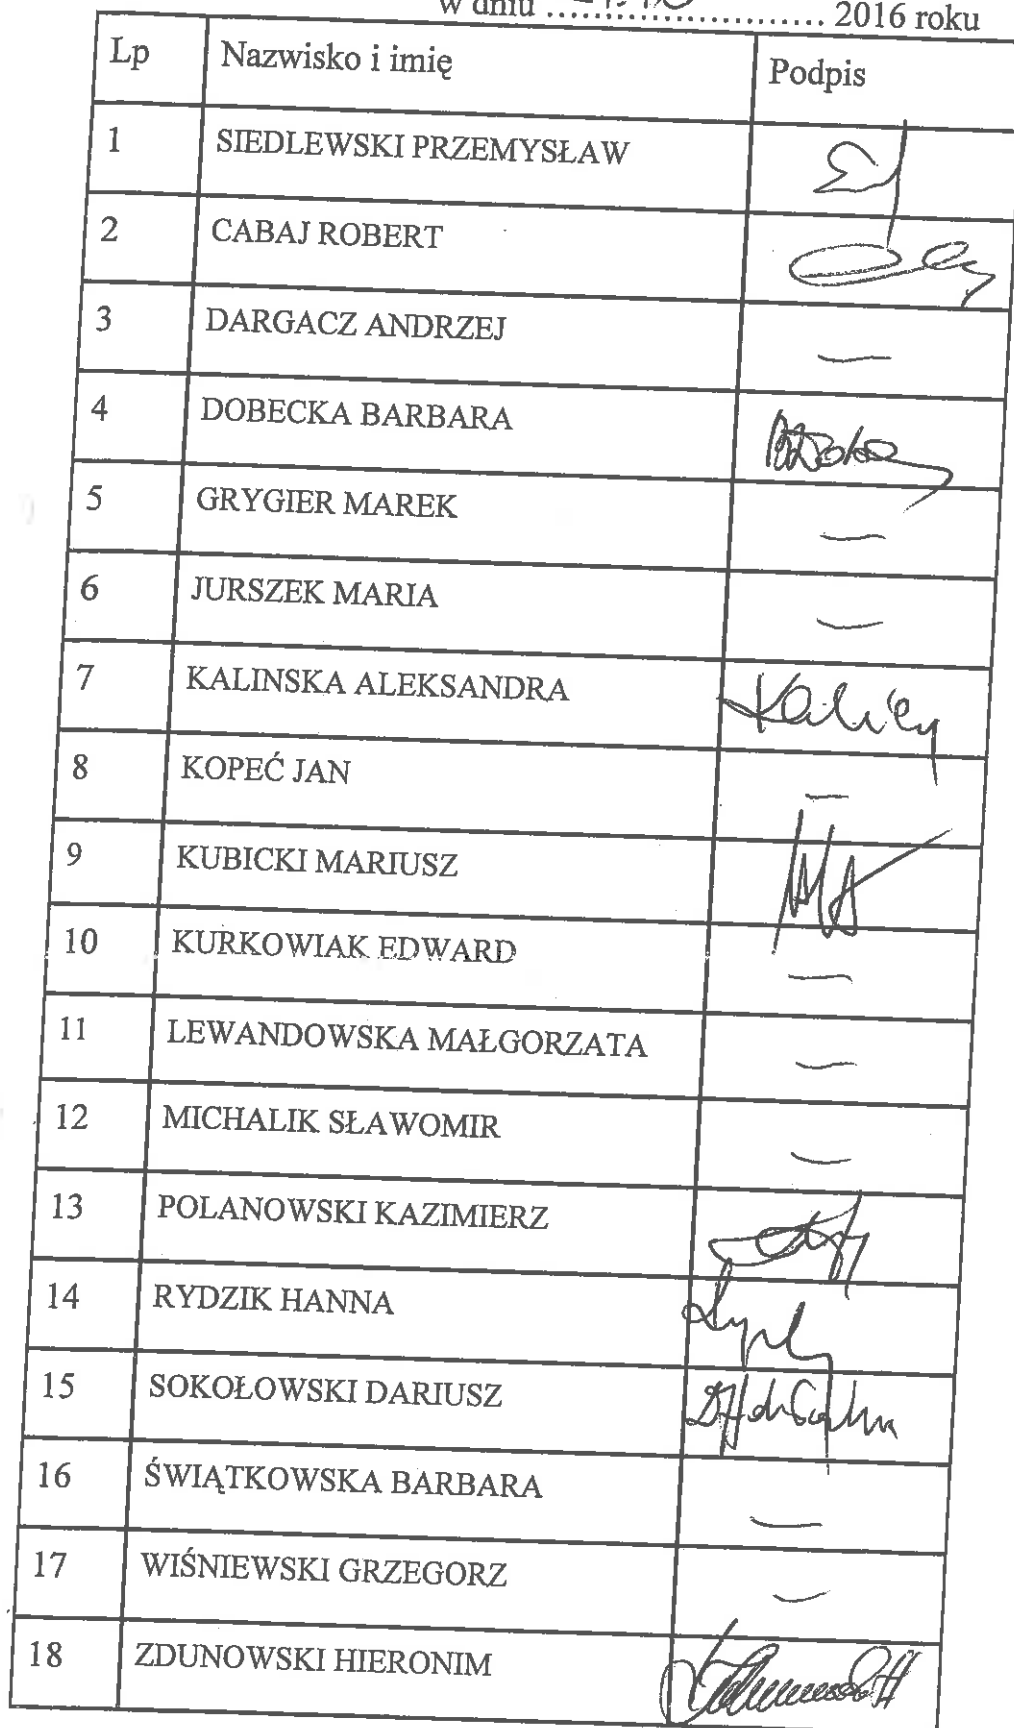 w dniu ........................ 2016 roku
Lp Nazwisko i imię Podpis
1 SIEDLEWSKI PRZEMYSŁAW
2 CABAJ ROBERT
3 DARGACZ ANDRZEJ —
4 DOBECKA BARBARA
5 GRYGIER MAREK —
6 JURSZEK MARIA —
7 KALINSKA ALEKSANDRA
8 KOPEĆ JAN —
9 KUBICKI MARIUSZ
10 KURKOWIAK EDWARD —
11 LEWANDOWSKA MAŁGORZATA —
12 MICHALIK SŁAWOMIR —
13 POLANOWSKI KAZIMIERZ
14 RYDZIK HANNA
15 SOKOŁOWSKI DARIUSZ
16 ŚWIĄTKOWSKA BARBARA —
17 WIŚNIEWSKI GRZEGORZ —
18 ZDUNOWSKI HIERONIM